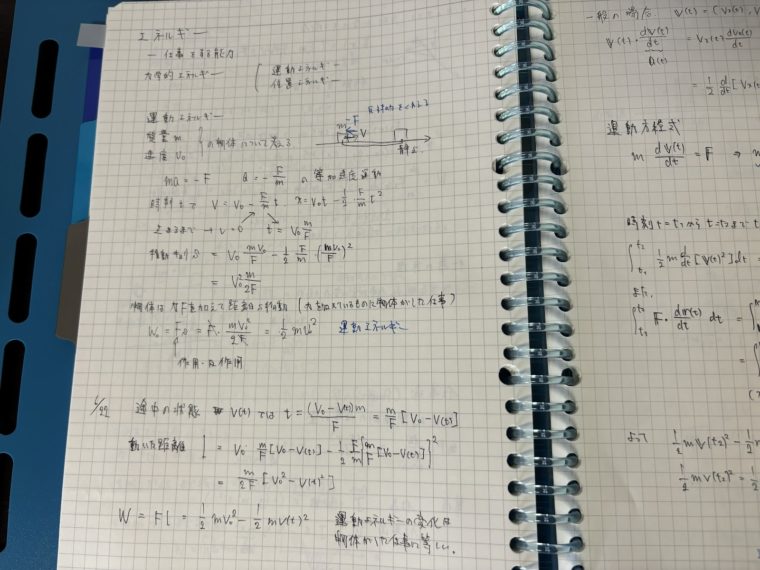 エネルギー
― 仕事をする能力
力学的エネルギー { 運動エネルギー
位置エネルギー
運動エネルギー
質量 m
速度 V₀ } の物体について考える
-F
m V
静止
ma = -F a = -F/m の等加速度運動
時刻 t で V = V₀ - F/m t x = V₀t - 1/2 F/m t²
止まるまで → v = 0 t = V₀ m/F
移動キョリ s = V₀ mV₀/F - 1/2 F/m (mV₀/F)²
= V₀² m/2F
物体は 力Fを加えて距離 s 移動 (力を加えているものに物体がした仕事)
W₀ = Fs = F・mV₀²/2F = 1/2 mV₀² 運動エネルギー
作用・反作用
6/22 途中の状態 V(t) では t = (V₀ - V(t))m/F = m/F [V₀ - V(t)]
動いた距離 l = V₀ m/F [V₀ - V(t)] - 1/2 F/m [m/F [V₀ - V(t)]]²
= m/2F [V₀² - V(t)²]
W = Fl = 1/2 mV₀² - 1/2 mV(t)² 運動エネルギーの変化は
物体がした仕事に等しい。
一般の場合 V(t) = (Vx(t), V
V(t)・dV(t)/dt = Vx(t) dVx(t)/dt
a(t)
= 1/2 d/dt [Vx(t)
運動方程式
m dV(t)/dt = F ⇒ m
時刻 t = t₁ から t = t₂ まで t
∫t₁t₂ 1/2 m d/dt [V(t)²] dt =
また、
∫t₁t₂ F・dr(t)/dt dt = ∫
= ∫
よって 1/2 mV(t₂)² - 1/2 m
1/2 mV(t₂)² = 1/2